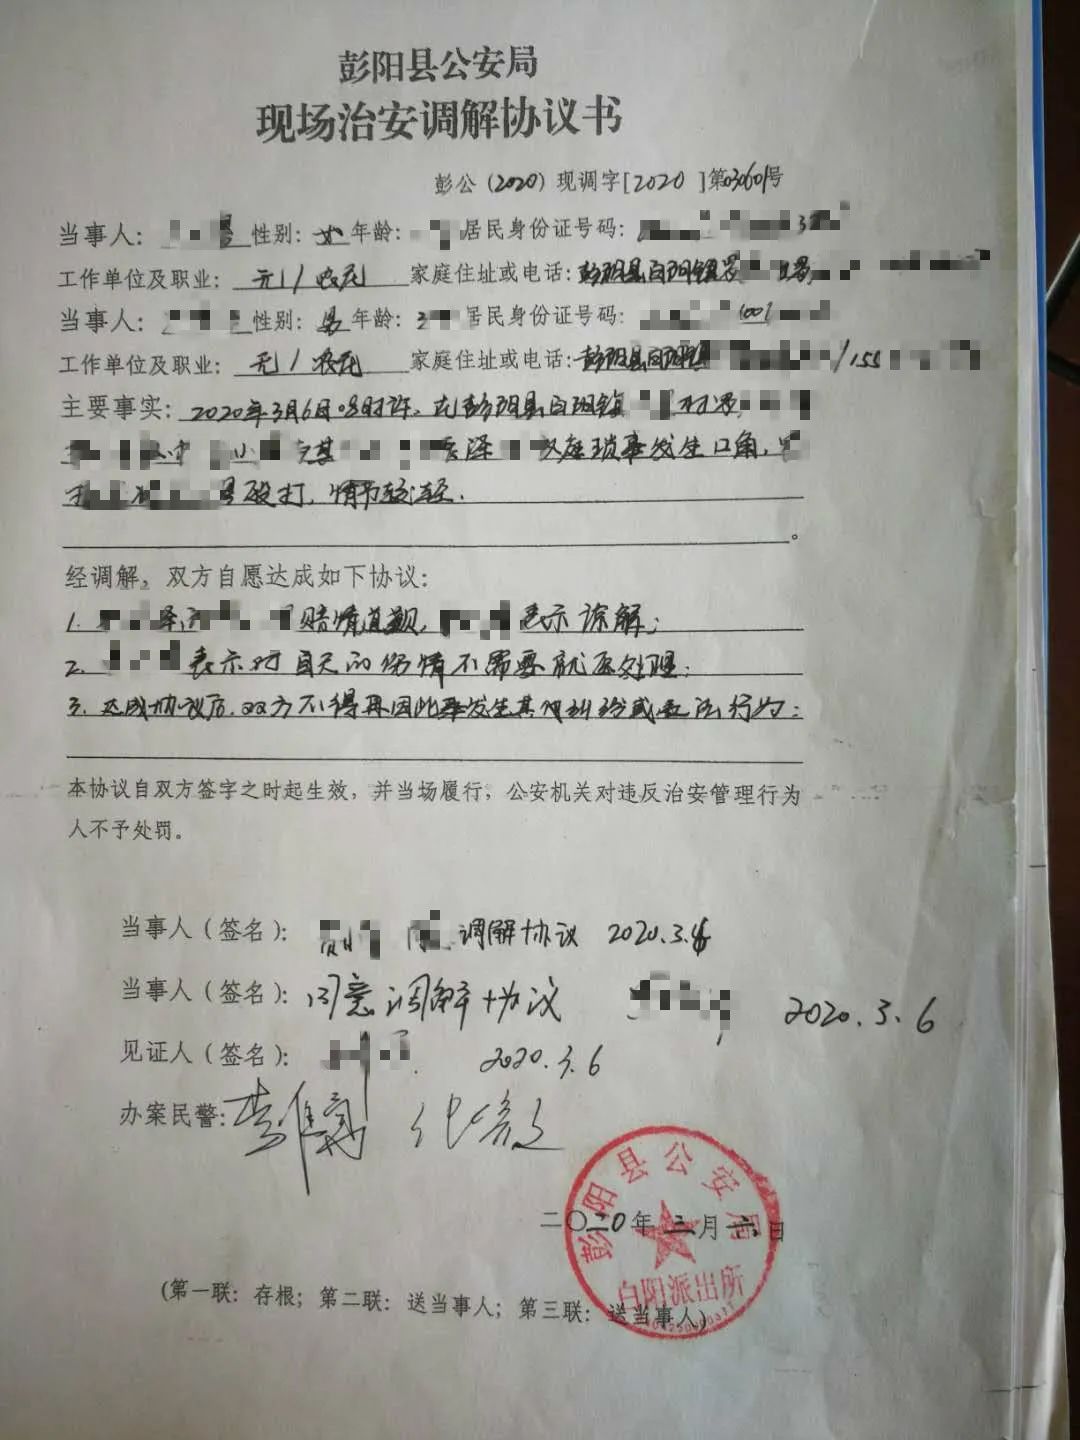 彭阳县公安局
现场治安调解协议书
彭公(2020)现调字[2020]第030601号
当事人: 性别:女年龄: 居民身份证号码: 3
工作单位及职业:无/农民 家庭住址或电话:彭阳县白阳镇
当事人: 性别:男年龄:3 居民身份证号码: 1001
工作单位及职业:无/农民 家庭住址或电话:彭阳县白阳镇 /155
主要事实:2020年3月6日08时许,在彭阳县白阳镇 村
因家庭琐事发生口角,
殴打,情节较轻.
。
经调解,双方自愿达成如下协议:
1. 赔情道歉, 表示谅解;
2. 表示对自己的伤情不需要就医处理;
3.达成协议后,双方不得再因此事发生其他纠纷或违法行为;
本协议自双方签字之时起生效,并当场履行,公安机关对违反治安管理行为
人不予处罚。
当事人(签名): 调解协议 2020.3.6
当事人(签名):同意调解协议 2020.3.6
见证人(签名): 2020.3.6
办案民警:
二〇二0年三月六日
彭阳县公安局
白阳派出所
(第一联:存根;第二联:送当事人;第三联:送当事人)